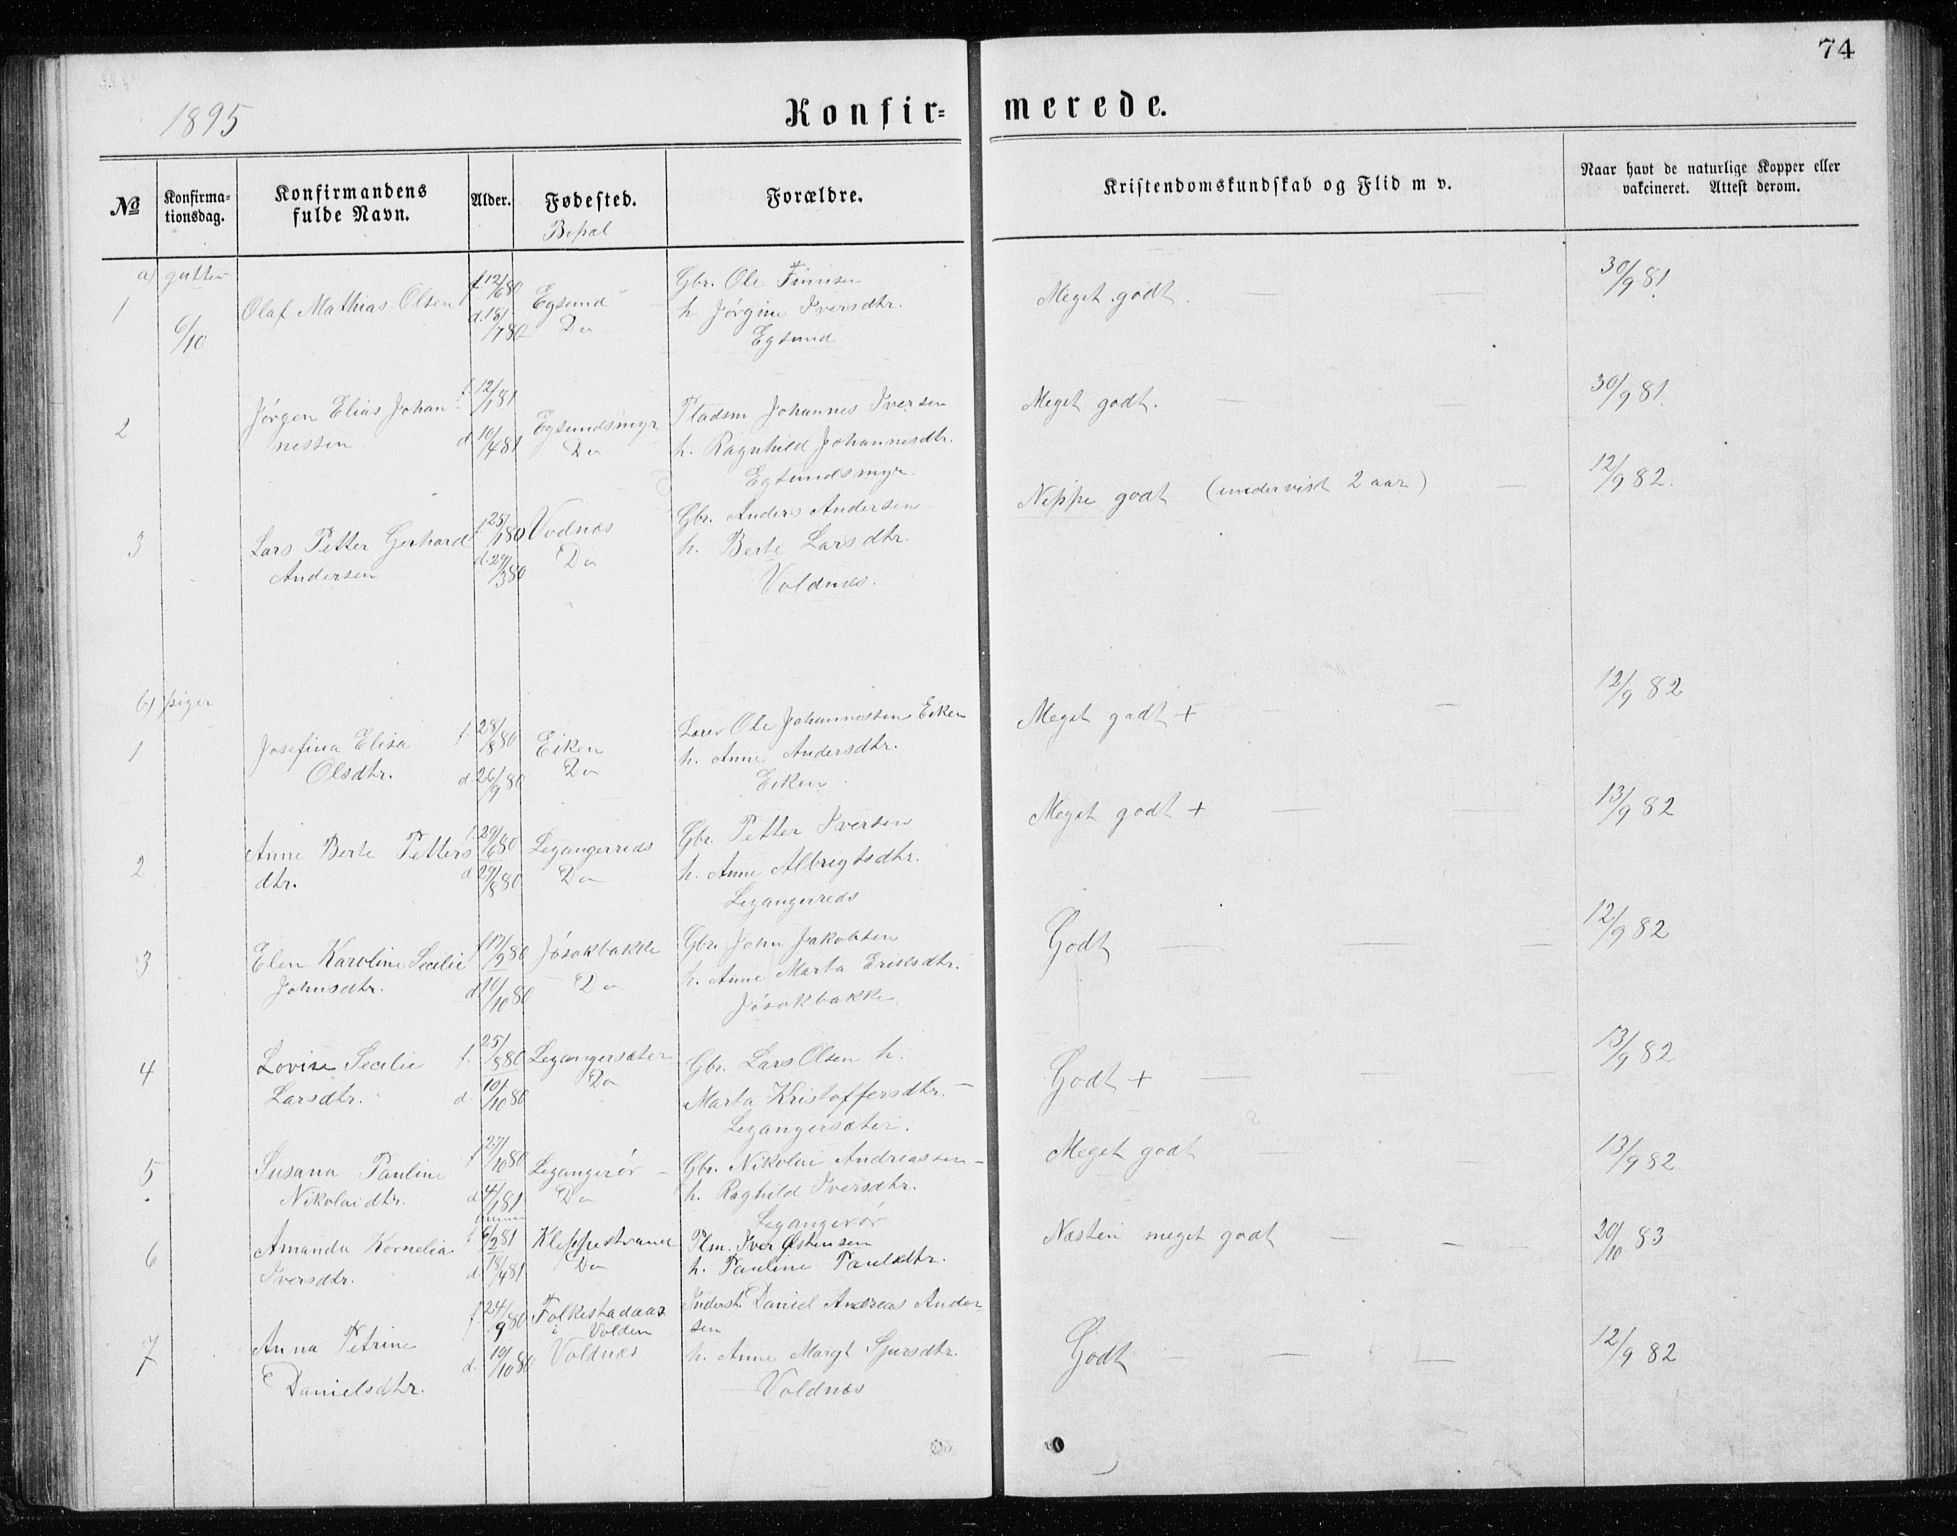 74
1895
Konfir= merede.
№
Konfirma-
tionsdag.
Konfirmandens
fulde Navn.
Alder.
Fødested.
Bopæl
Forældre.
Kristendomskundskab og Flid m v.
Naar havt de naturlige Kopper eller
vakcineret. Attest derom.
a) gutter
1
6/10
Olaf Mathias Olsen
f. 12/6 80
d. 18/7 80
Egsund
Do
Gbr. Ole Finnsen
h. Jørgine Iversdtr.
Egsund
Meget godt.
30/9 81.
2
Jørgen Elias Johan-
nessen
f. 12/1 81
d. 10/4 81
Egsundsmyr
Do
Pladsm Johannes Iversen
h. Ragnhild Johannesdtr.
Egsundsmyr.
Meget godt.
30/9 81.
3
Lars Petter Gerhard
Andersen
f. 25/1 80
d. 29/3 80
Vodnæs
Do
Gbr. Anders Andersen
h. Berte Larsdtr.
Voldnæs.
Neppe godt (undervist 2 aar)
12/9 82.
b) piger
1
Josefina Elisa
Olsdtr.
f. 28/8 80
d. 26/9 80
Eiken
Do
Ole Johannessen Eiken
h. Anne Andersdtr.
Eiken
Meget godt +
12/9 82
2
Anne Berte Petters
dtr.
f. 29/6 80
d. 29/8 80
Leganger­reds
Do
Gbr. Petter Iversen
h. Anne Albrigtsdtr.
Legangerreds
Meget godt +
13/9 82
3
Elen Karoline Secilie
Johnsdtr.
f. 17/9 80
d. 10/10 80
Jøsokbakke
Do
Gbr. John Jakobsen
h. Anne Marta Eriksdtr.
Jøsokbakke
Godt
12/9 82
4
Lovise Secilie
Larsdtr.
f. 25/8 80
d 10/10 80
Legangersæter
Do
Gbr. Lars Olsen h.
Marta Kristoffersdtr.
Legangersæter.
Godt +
13/9 82
5
Susana Pauline
Nikolaidtr.
f. 27/10 80
d. 4/1 81
Legangerør
Do
Gbr. Nikolai Andreassen
h. Raghild Iversdtr.
Legangerør
Meget godt
13/9 82
6
Amanda Kornelia
Iversdtr.
f. 6/2 81
d. 18/4 81
Kleppestrand
Do
Plm. Iver Østensen
h. Pauline Paulsdtr.
Næsten meget godt
20/10 83
7
Anna Petrine
Danielsdtr.
f. 24/9 80
d. 10/10 80
Folkestadaas
i Volden
Voldnæs
Inderst. Daniel Andreas Ander-
sen
h. Anne Margt Sjursdtr.
Voldnæs
Godt
12/9 82